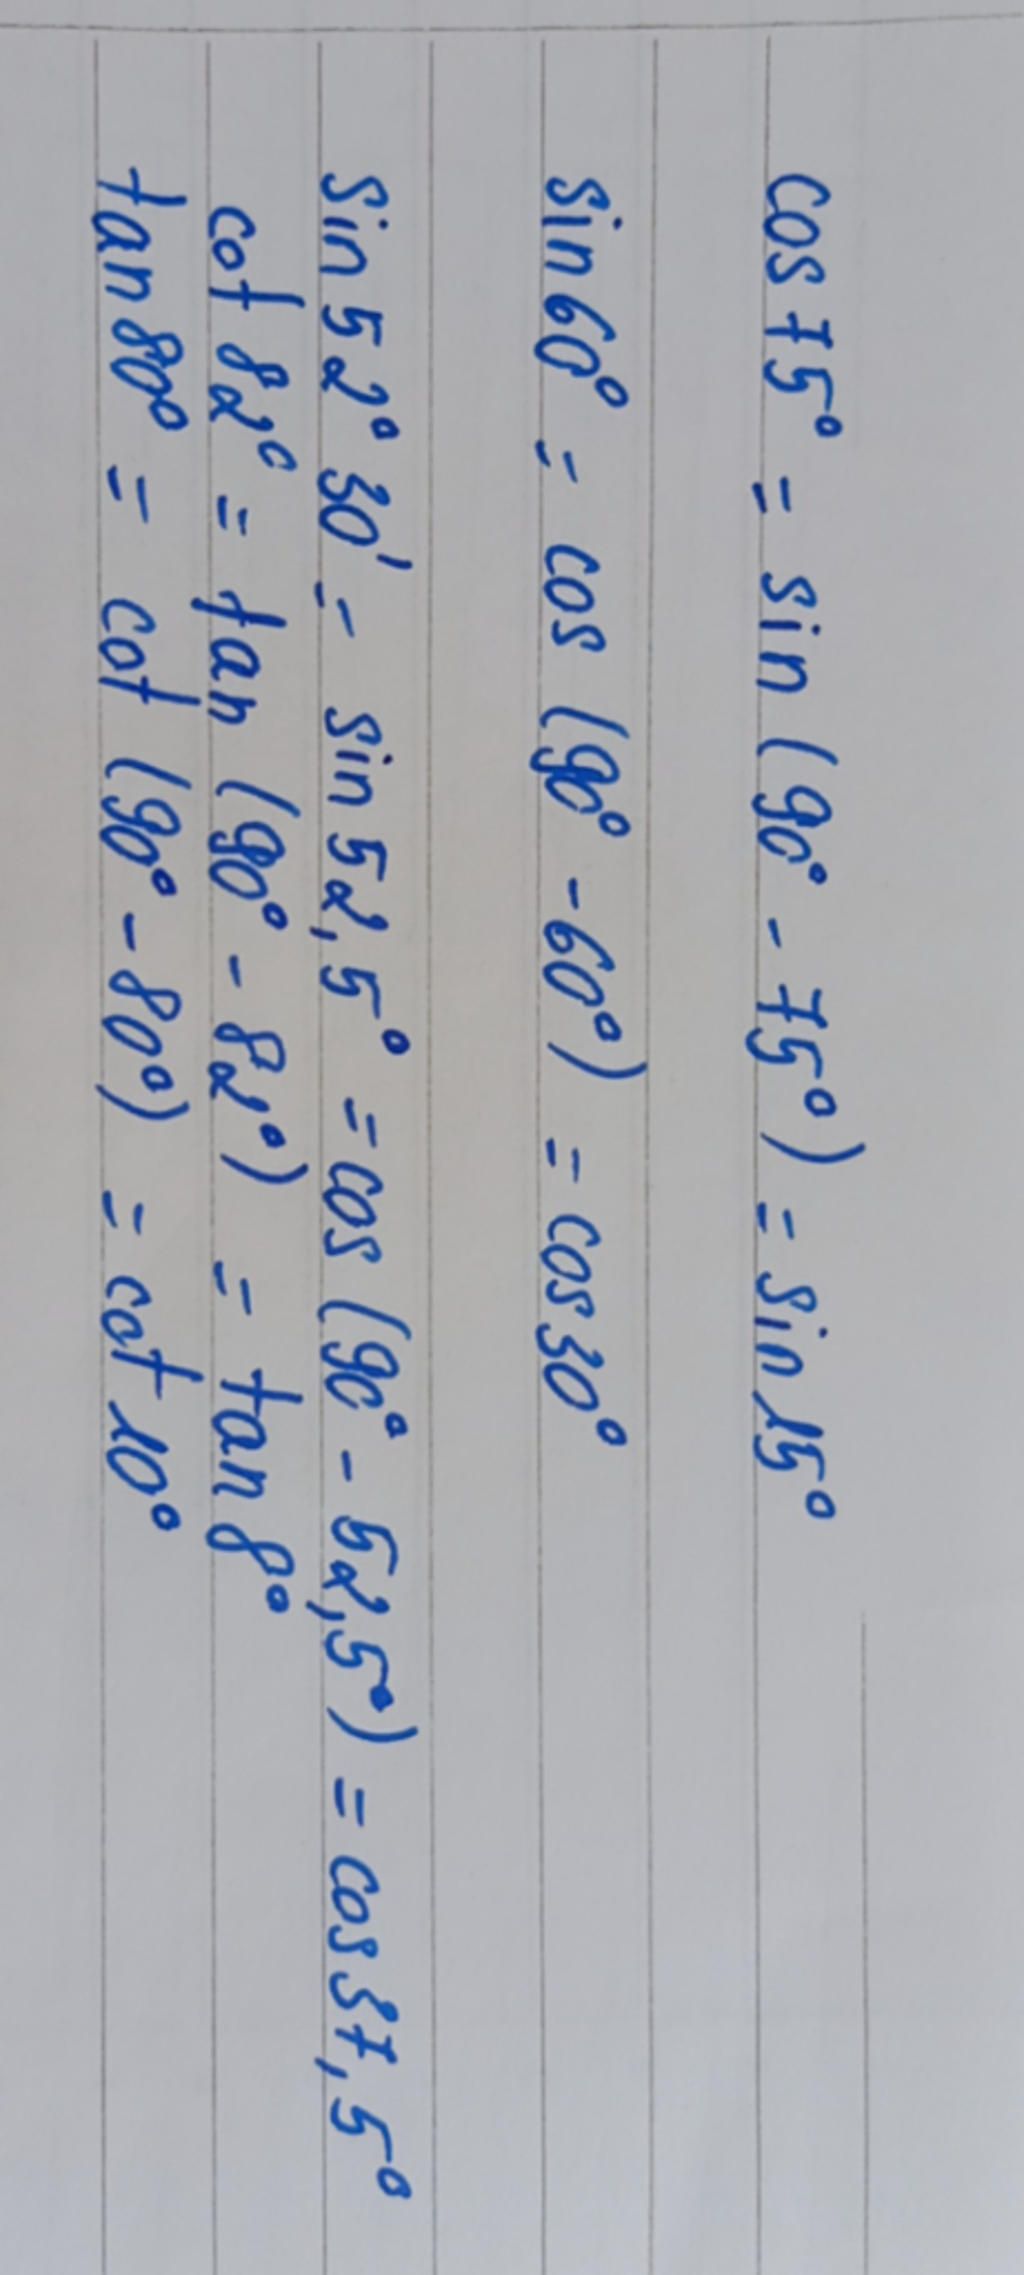 cos 75° = sin (90° - 75°) = sin 15°
sin 60° = cos (90° - 60°) = cos 30°
sin 52° 30' = sin 52,5° = cos (90° - 52,5°) = cos 37,5°
cot 82° = tan (90° - 82°) = tan 8°
tan 80° = cot (90° - 80°) = cot 10°